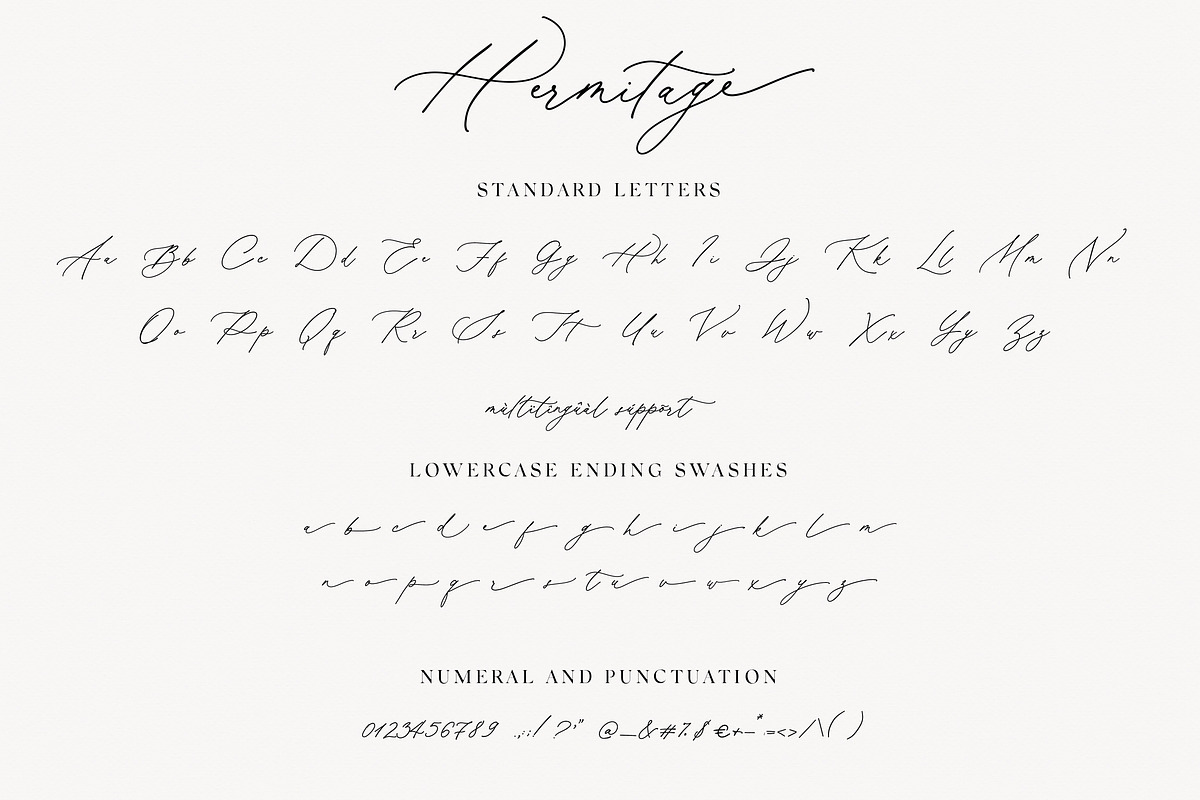 Hermitage
STANDARD LETTERS
Aa Bb Cc Dd Ee Ff Gg Hh Ii Jj Kk Ll Mm Nn
Oo Pp Qq Rr Ss Tt Uu Vv Ww Xx Yy Zz
mùltitíngûàl sùppõrt
LOWERCASE ENDING SWASHES
a b c d e f g h i j k l m
n o p q r s t u v w x y z
NUMERAL AND PUNCTUATION
0123456789 .,;:/ ?'" @_&#%$€+-*=<>/\( )